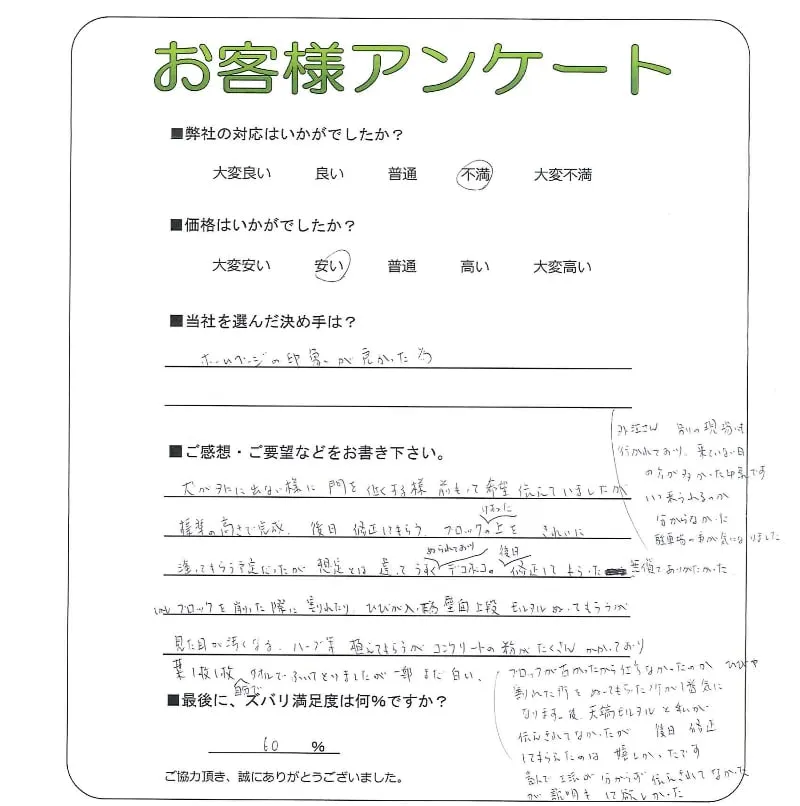 お客様アンケート
■弊社の対応はいかがでしたか？
大変良い 良い 普通 不満 大変不満
■価格はいかがでしたか？
大変安い 安い 普通 高い 大変高い
■当社を選んだ決め手は？
ホームページの印象が良かった為
■ご感想・ご要望などをお書き下さい。
犬が外に出ない様に 門を低くする様 前もって希望 伝えていましたが
標準の高さで完成、後日 修正してもらう、ブロックの上を きれいに
塗ってもらう予定だったが 想定とは違って うすく デコボコの 後日 修正してもらった 無償でありがたかった
ブロックを削った際に 割れたり、ひびが入り 壁面上段 モルタルぬってもらうが
見た目が汚くなる、ハーブ等 植えてもらうが コンクリートの粉がたくさん かかっており
葉1枚1枚 自分で タオルでふいてとりましたが 一部 まだ白い、
外江さん 別の現場も
行かれており、来ていない日
の方が多かった印象です
いつ来られるのか
分からなかった
駐車場の車が気になりました
ブロックが古かったから仕方なかったのか ひびや
割れた所を ぬってもらった所が1番気に
なります。後、天端モルタルと私が
伝えきれてなかったが 後日 修正
してもらえたのは 嬉しかったです
工法が 分からず 伝えきれてなかった
が 説明を して欲しかった
■最後に、ズバリ満足度は何％ですか？
60 ％
ご協力頂き、誠にありがとうございました。